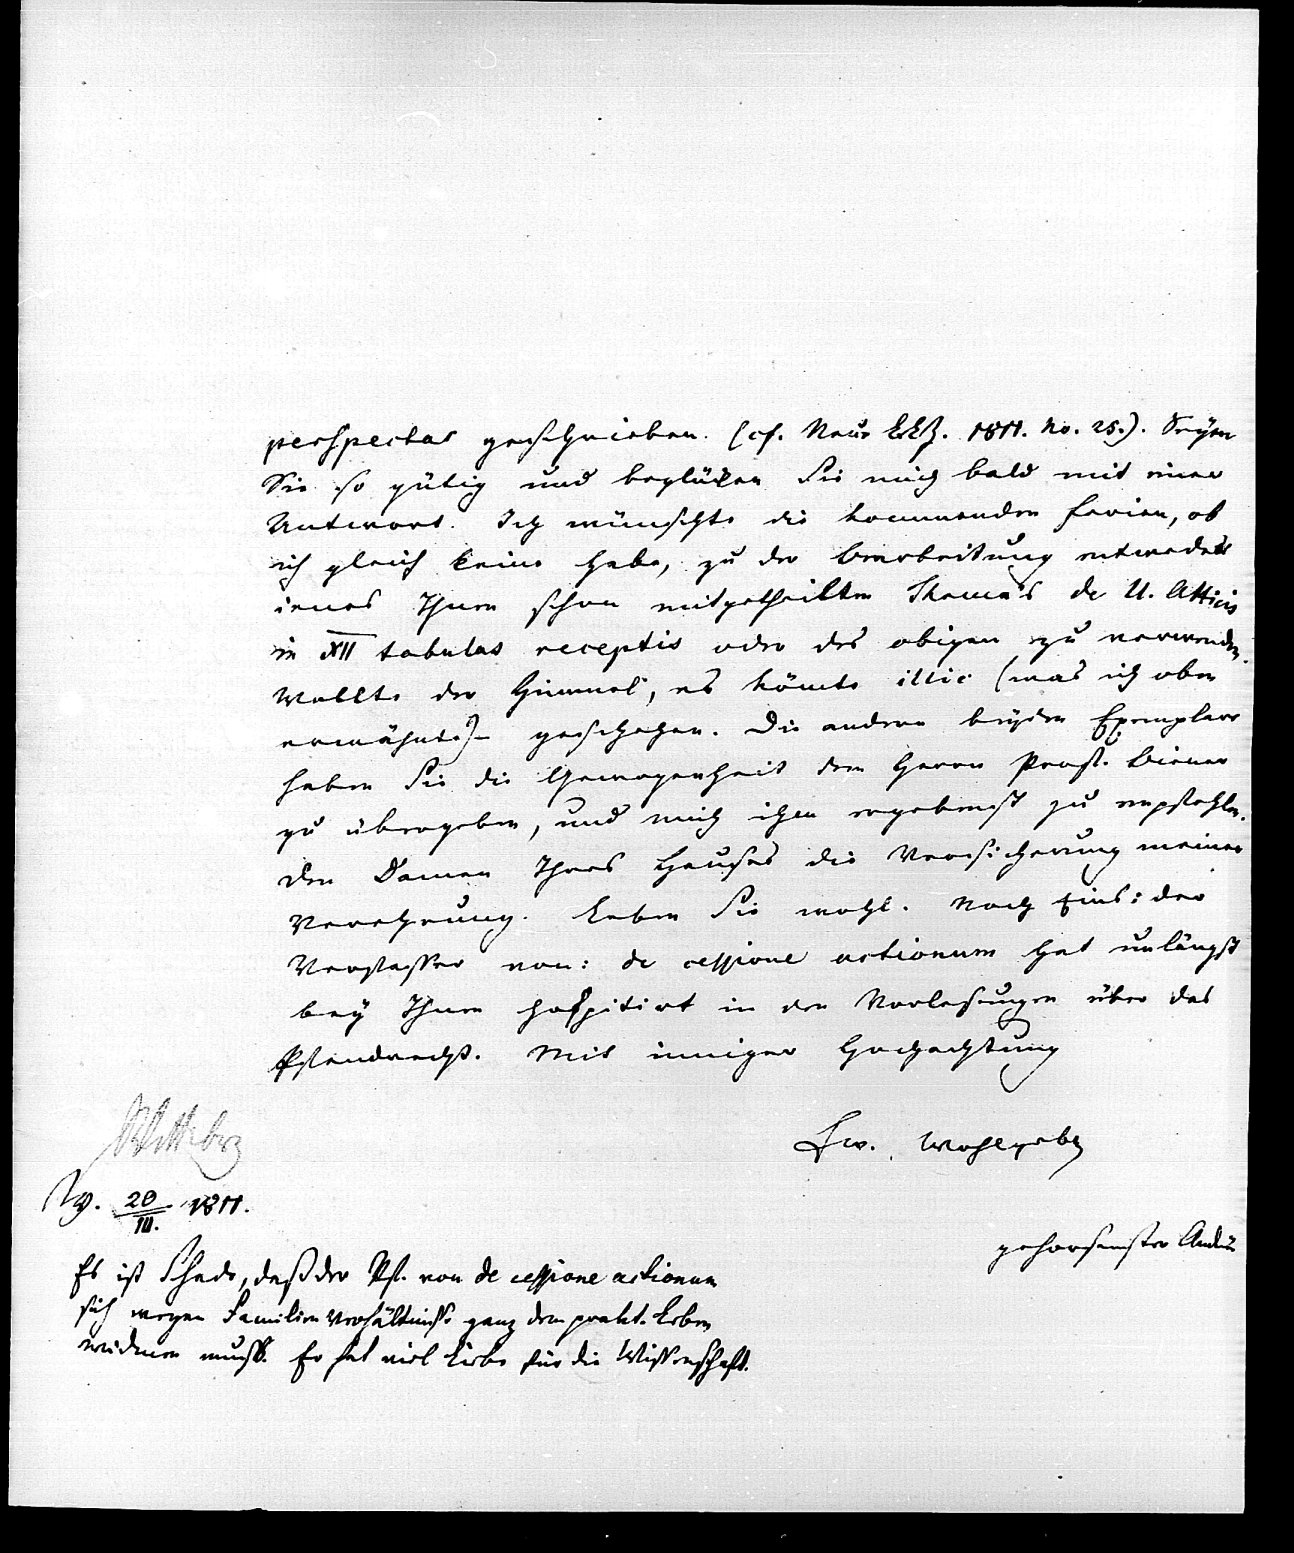 perspectas geschrieben. (cf. Neue LLZ. 1811. No. 25.). Seyen
Sie so gütig und beglücken Sie mich bald mit einer
Antwort. Ich wünschte die kommenden Ferien, ob
ich gleich keine habe, zu der Bearbeitung entweder
jenes Ihnen schon mitgetheilten Thema's de ll. Atticis
in XII tabulas receptis oder des obigen zu verwenden.
Wollte der Himmel, es könnte illic (was ich oben
erwähnte) geschehen. Die andern beyden Exemplare
haben Sie die Gewogenheit dem Herrn Prof. Biener
zu übergeben, und mich ihm ergebenst zu empfehlen.
Den Damen Ihres Hauses die Versicherung meiner
Verehrung. Leben Sie wohl. Noch Eins: der
Verfasser von: de cessione actionum hat unlängst
bey Ihnen hospitirt in den Vorlesungen über das
Pfandrecht. Mit inniger Hochachtung
Ew. Wohlgeb
Wittebrg
W. 20/III. 1811.
gehorsamster
Es ist Schade, daß der Vf. von de cessione actionum
sich wegen Familienverhältnisse ganz dem prakt. Leben
widmen muß. Er hat viel Liebe für die Wissenschaft.